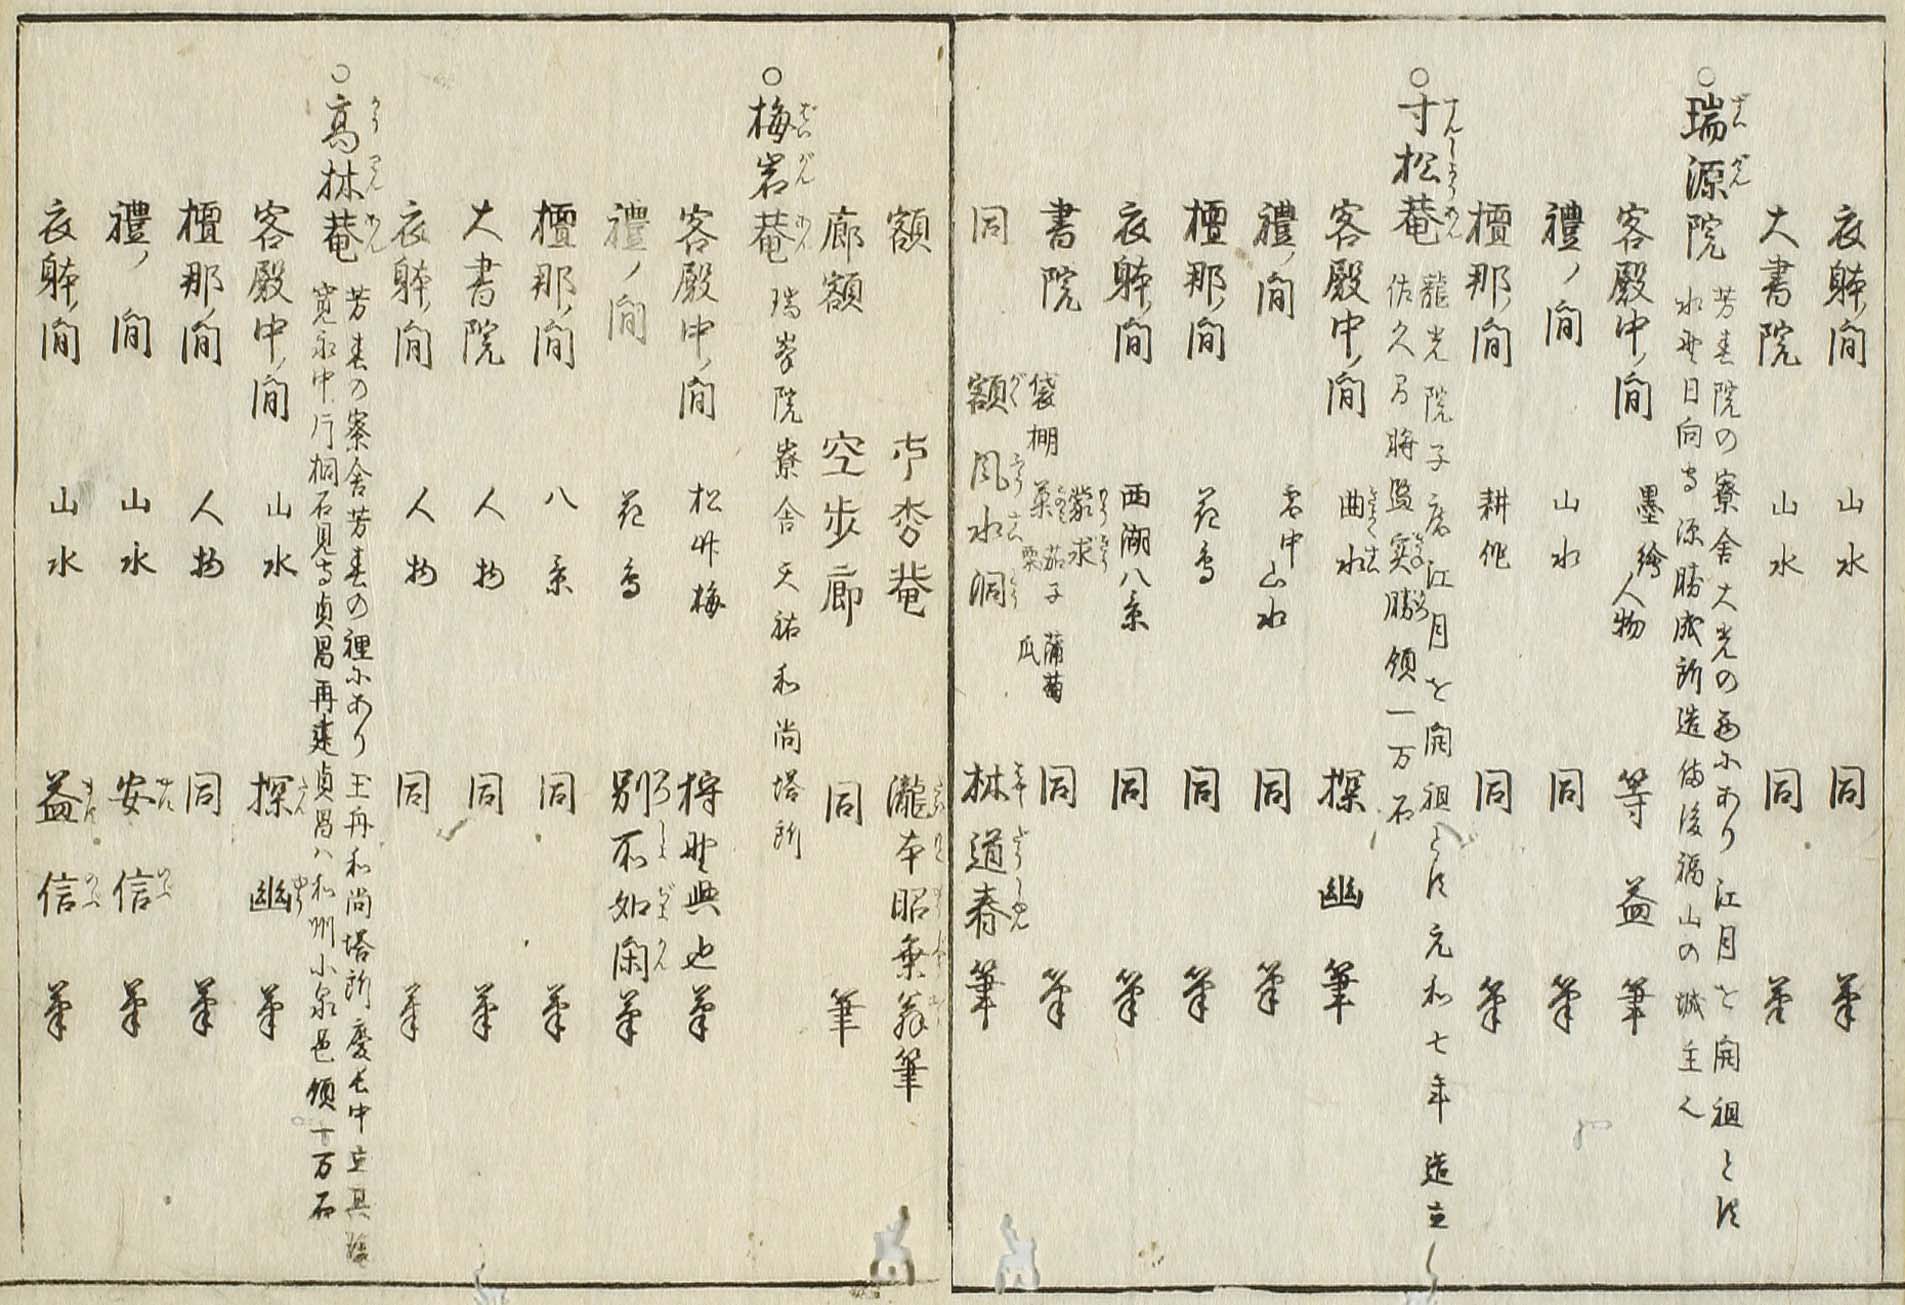 衣躰ノ間 山水 同 筆
大書院 山水 同 筆
○瑞源院 芳春院の寮舎大光の西にあり江月を開祖とす
水野日向守源勝成所造備後福山の城主人
客殿中ノ間 墨繪人物 等益筆
禮ノ間 山水 同 筆
檀那ノ間 耕作 同 筆
○寸松菴 龍光院子房江月を開祖とす元和七年造立し
佐久间将監実勝領一万石
客殿中ノ間 曲水 探幽筆
禮ノ間 雪中山水 同 筆
檀那ノ間 花鳥 同 筆
衣躰ノ間 西湖八景 同 筆
書院 袋棚 蒙求 菓 茄子 栗 蒲萄 瓜 同 筆
同 額 風水洞 林道春筆
額 菴 瀧本昭乗翁筆
廊額 空歩廊 同 筆
○梅岩菴 瑞峯院寮舎天祐和尚塔所
客殿中ノ間 松竹梅 狩野典也筆
禮ノ間 花鳥 別所如閑筆
檀那ノ間 八景 同 筆
大書院 人物 同 筆
衣躰ノ間 人物 同 筆
○高林菴 芳春の寮舎芳春の裡にあり玉舟和尚塔所慶長中立其後
寛永中片桐石見守貞昌再建貞昌ハ和州小泉邑領一万石
客殿中ノ間 山水 探幽筆
檀那ノ間 人物 同 筆
禮ノ間 山水 安信筆
衣躰ノ間 山水 益信筆